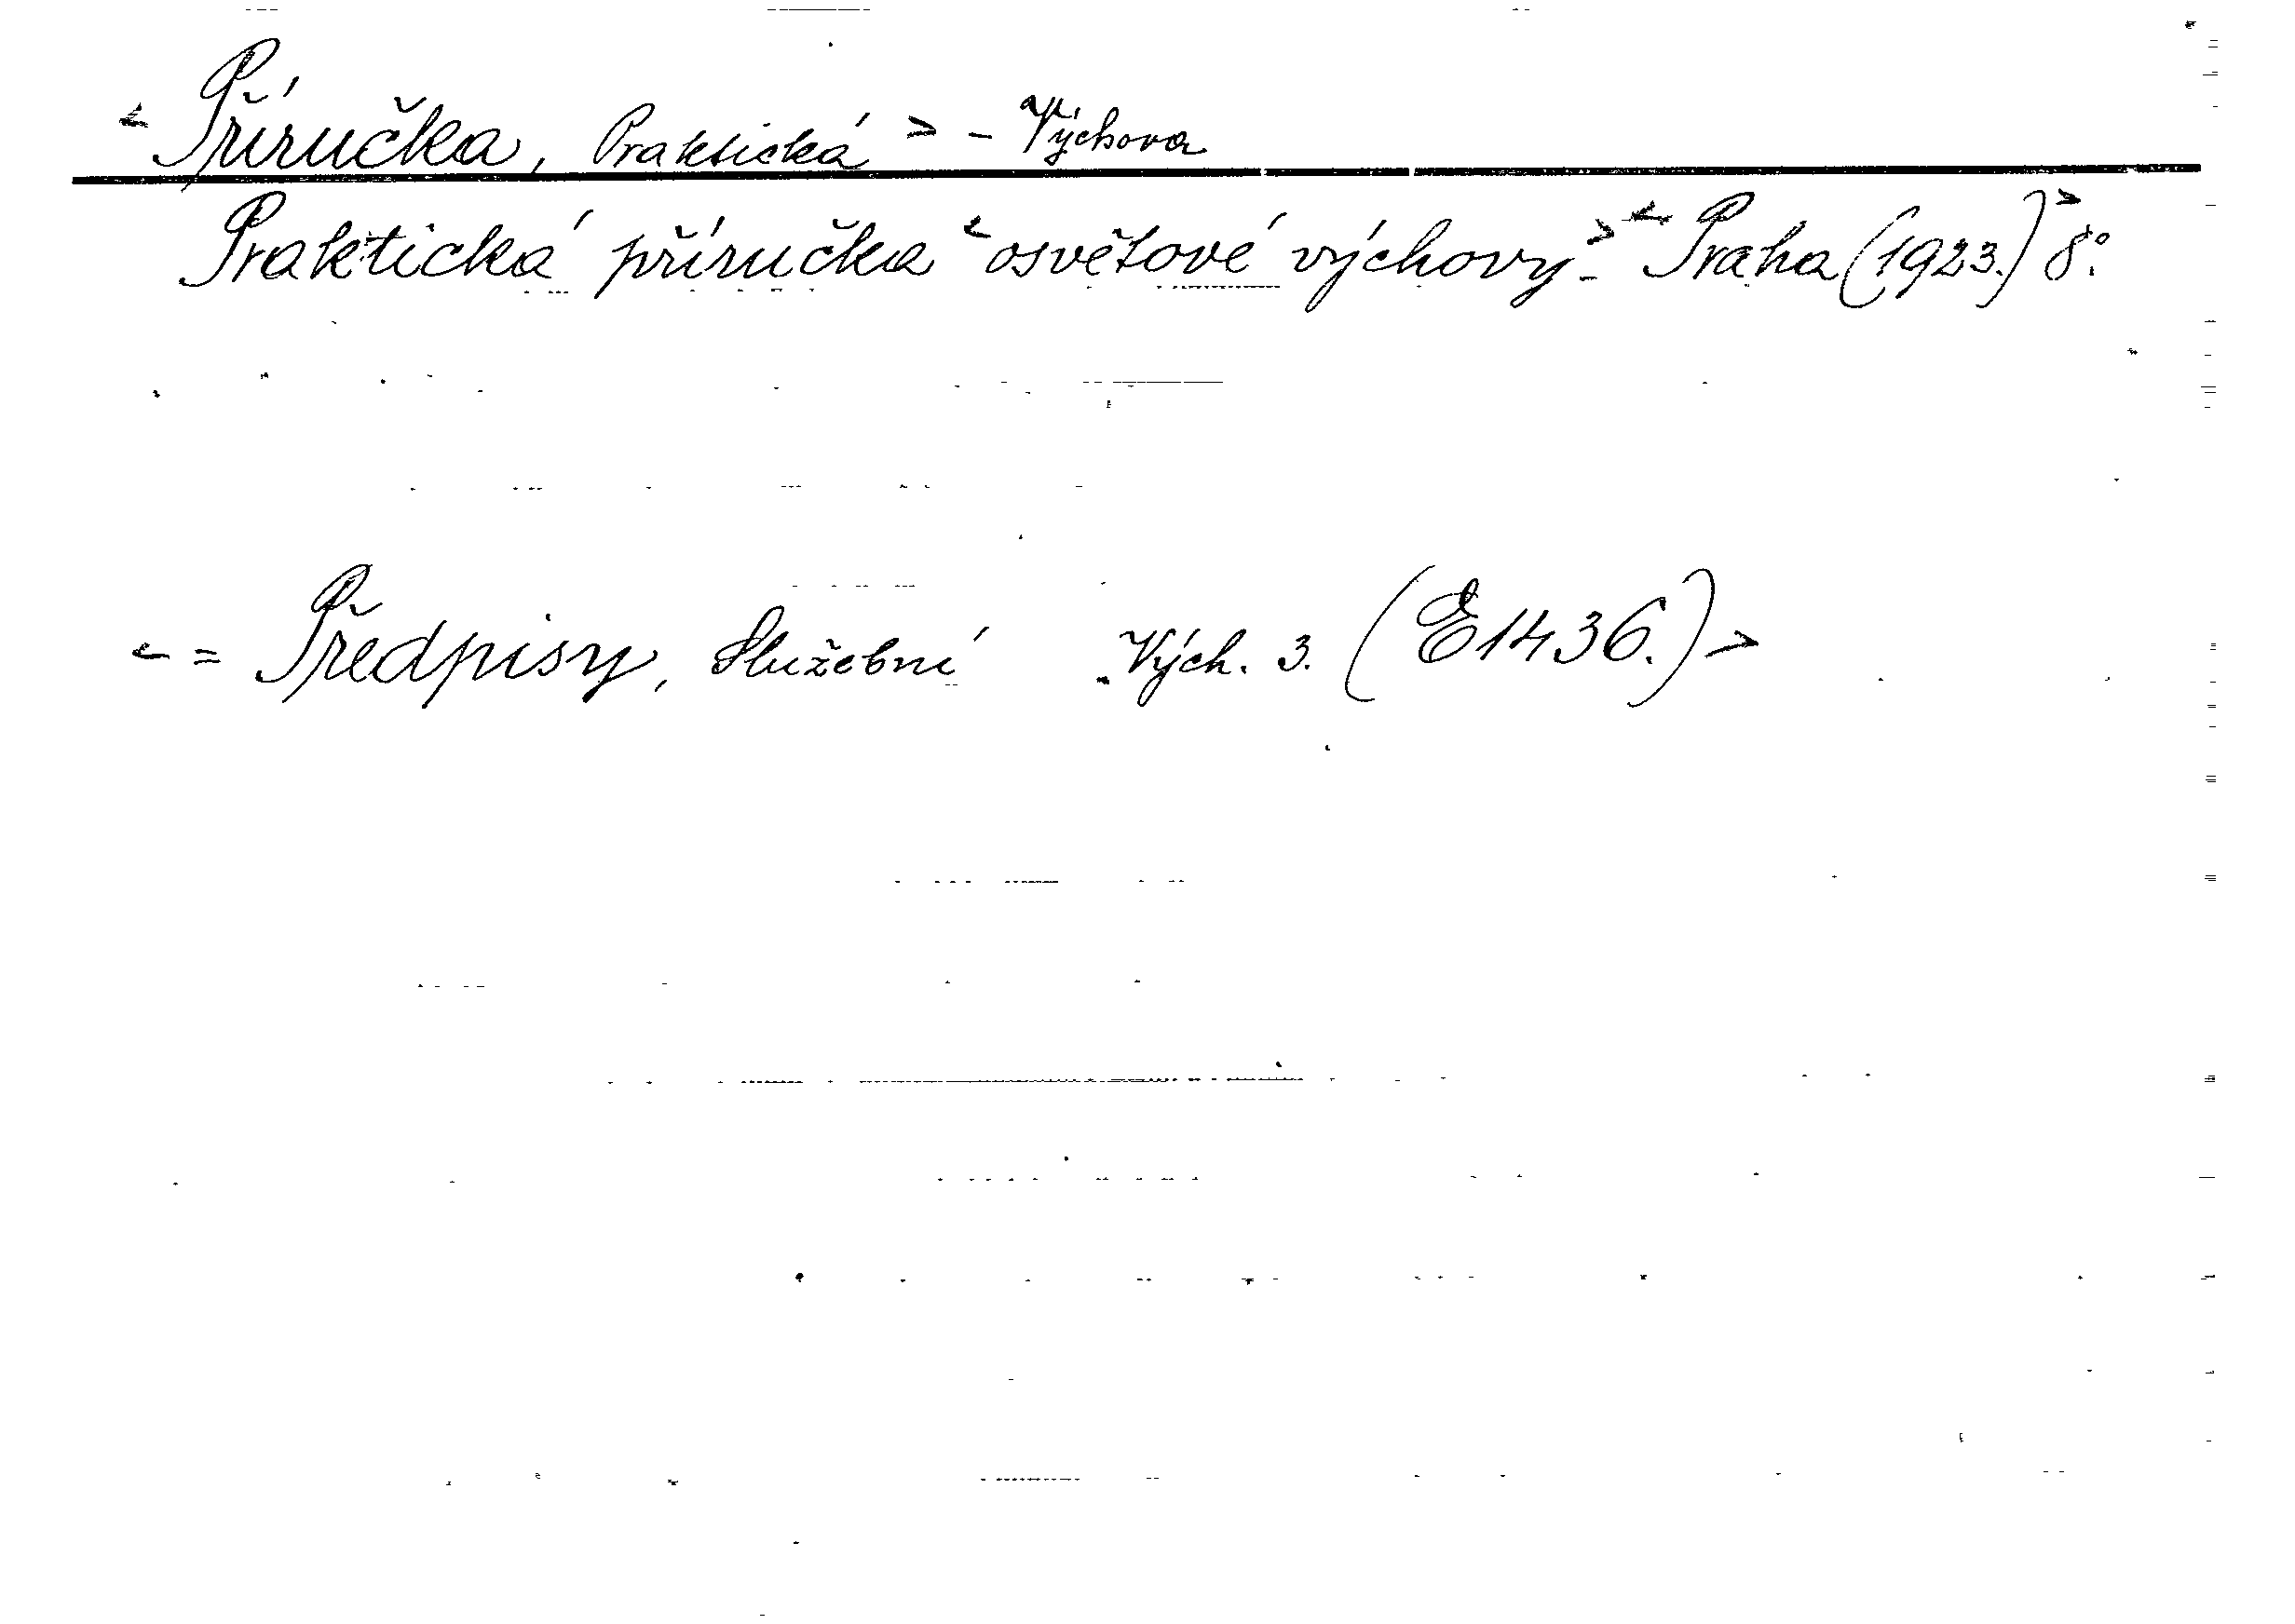 < Příručka, Praktická > - Výchova
Praktická příručka < osvětové výchovy. > < Praha (1923.) > 8°.
< = Předpisy, Služební Vých. 3. (E1436.) >